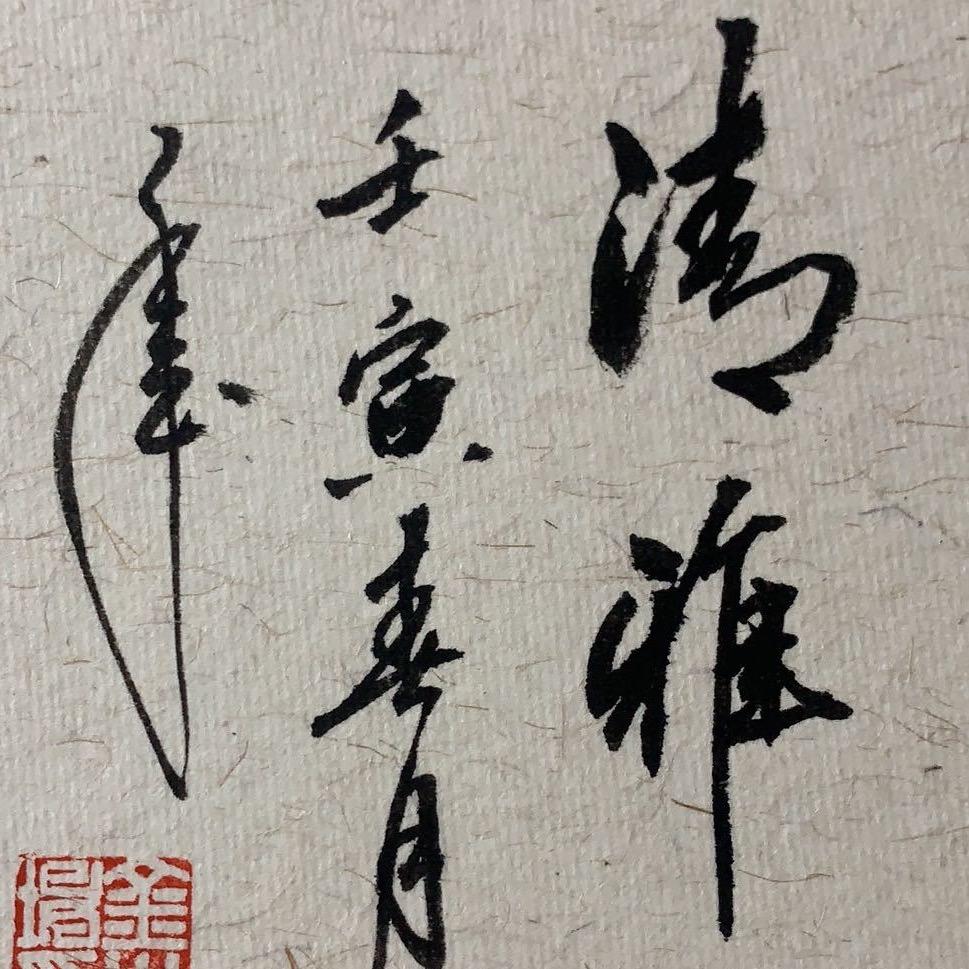 清雅
壬寅春月